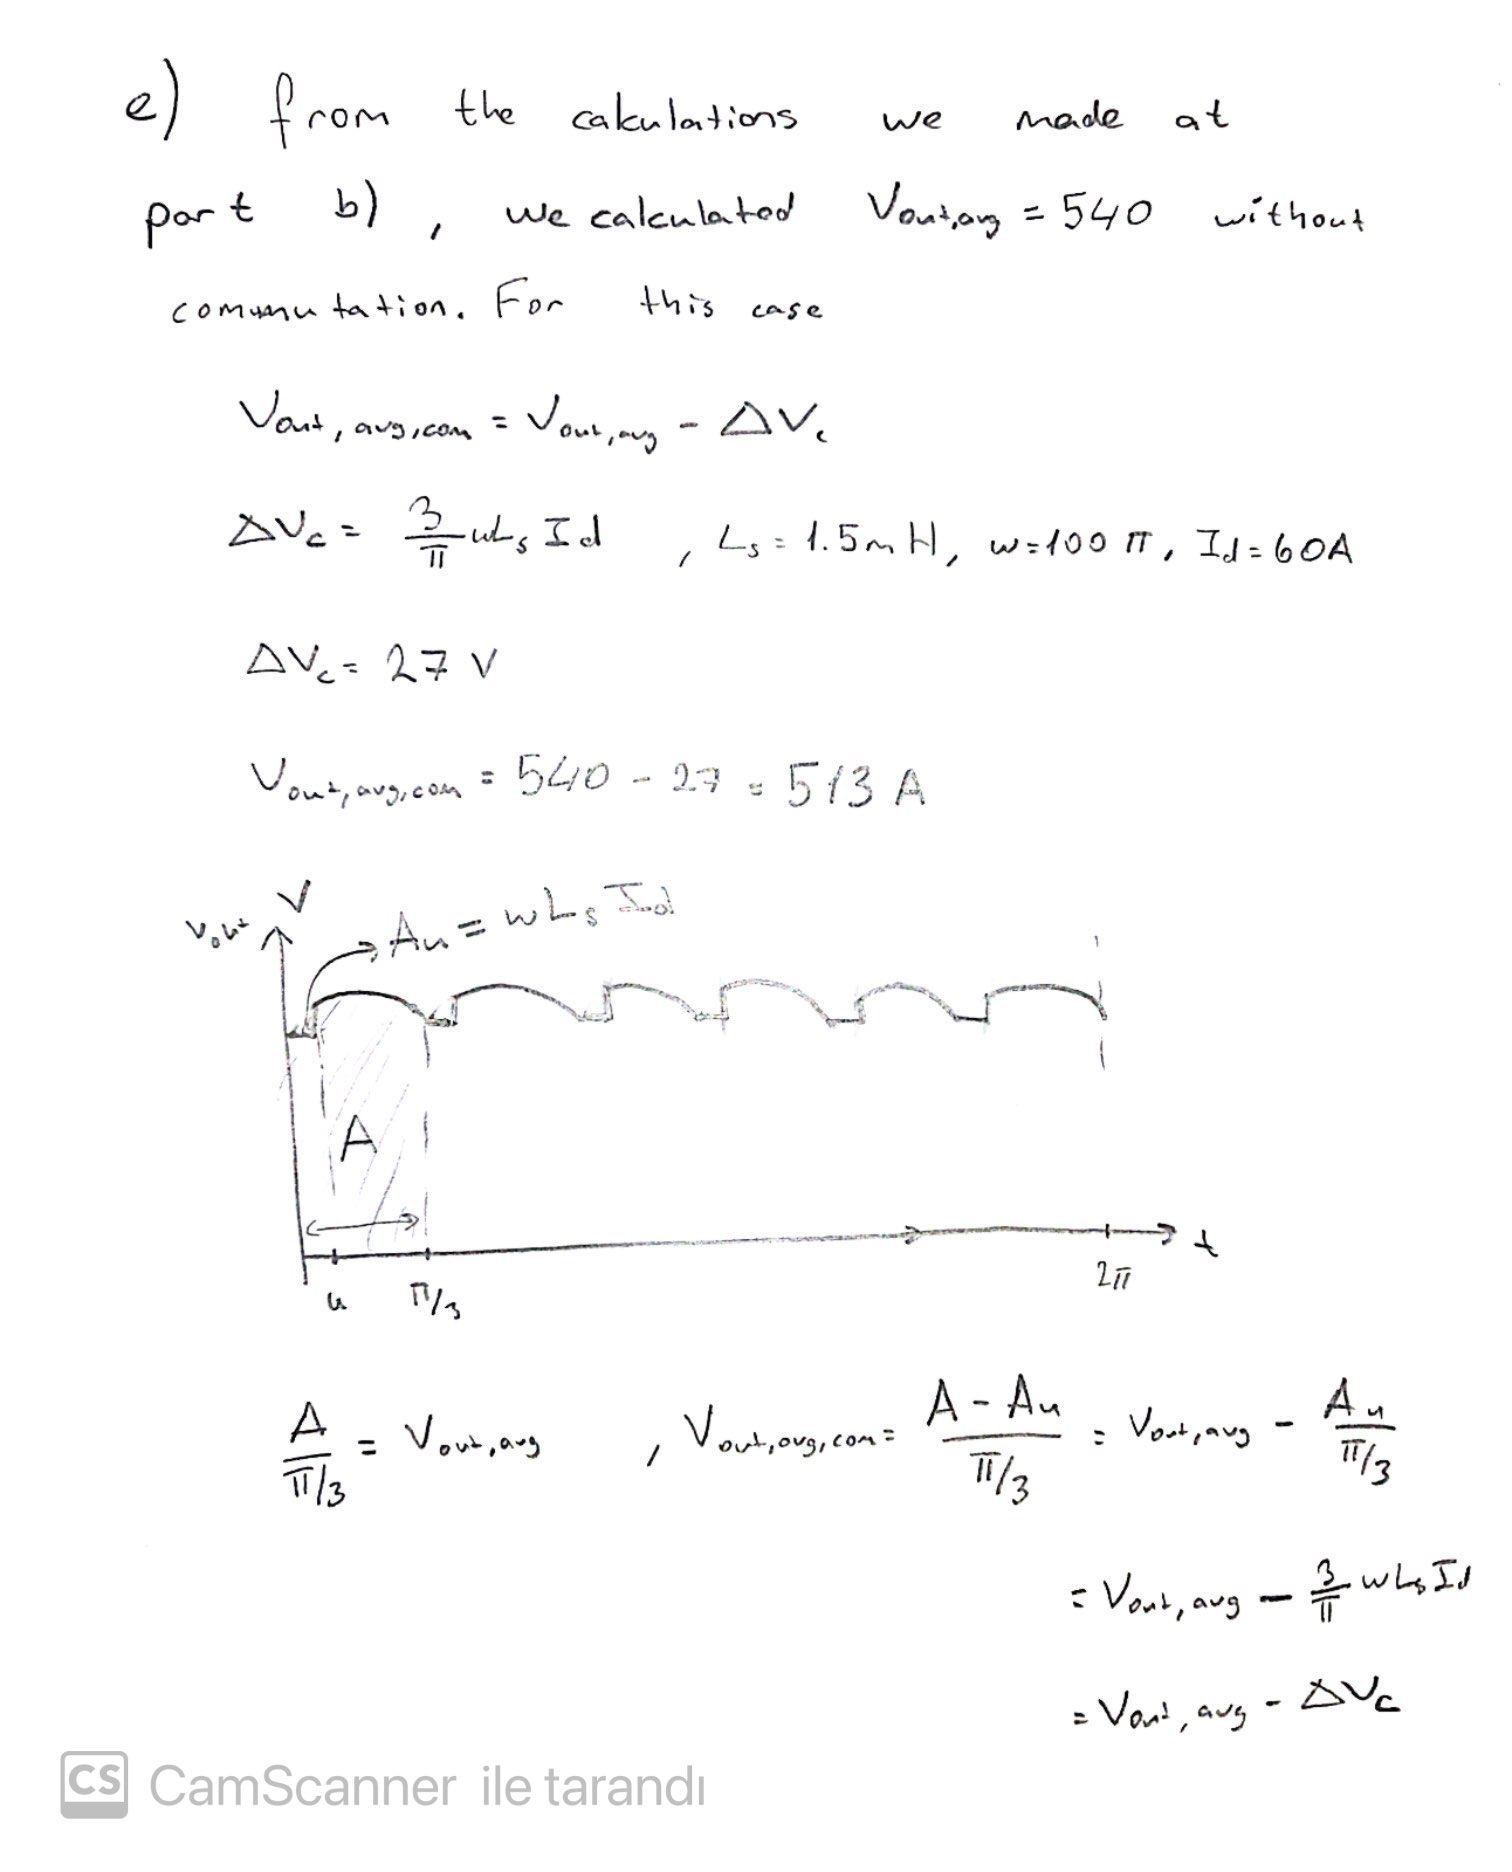 e) from the calculations we made at
part b) , we calculated Vout,avg = 540 without
commutation. For this case
Vout,avg,com = Vout,avg - ΔVc
ΔVc = 3/π wLs Id , Ls = 1.5mH, w=100 π, Id=60A
ΔVc = 27 V
Vout,avg,com = 540 - 27 = 513 A
V
Vout
Au = wLs Id
A
t
u π/3 2π
A/(π/3) = Vout,avg , Vout,avg,com = (A - Au)/(π/3) = Vout,avg - Au/(π/3)
= Vout,avg - 3/π wLs Id
= Vout,avg - ΔVc
CS CamScanner ile tarandı